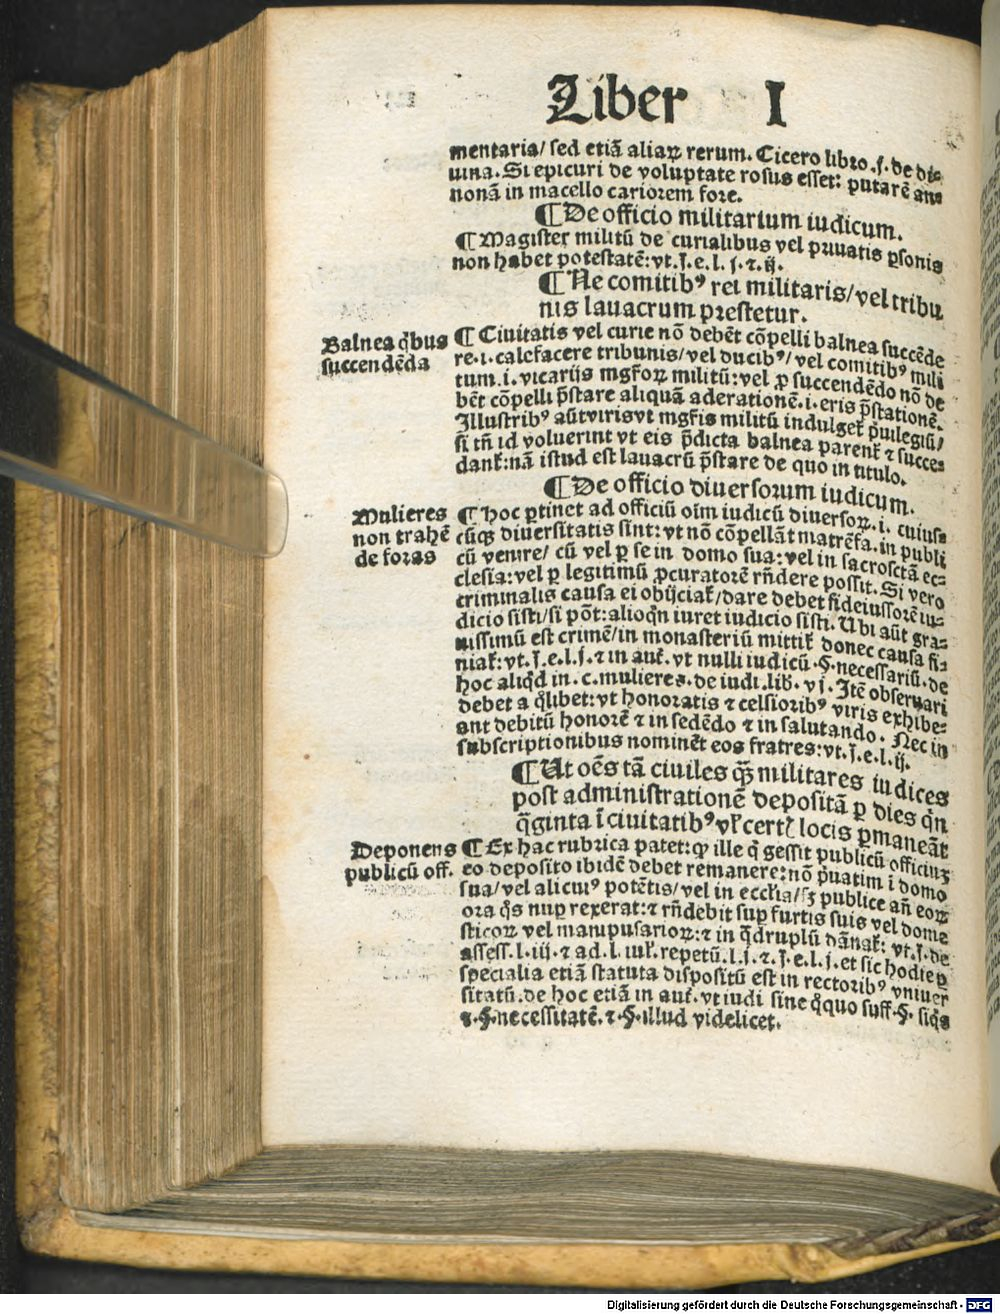 Liber I
mentaria/ sed etiā aliaꝝ rerum. Cicero libro .j. de di⸗
uina. Si epicuri de voluptate rosus esset: putarē an⸗
nonā in macello cariorem fore.
¶ De officio militarium iudicum.
¶ Magister militū de curialibus vel priuatis ꝑsonis
non habet potestatē: vt .J. e. l. j. ⁊ .ij.
¶ Ne comitibꝰ rei militaris/ vel tribu
nis lauacrum prestetur.
Balnea q̇bus
succendēda
¶ Ciuitatis vel curie nō debēt cōpelli balnea succēde
re .i. calefacere tribunis/ vel ducibꝰ/ vel comitibꝰ mili
tum .i. vicarijs mgr̄oꝝ militū: vel ꝓ succendēdo nō de
bēt cōpelli p̄stare aliquā aderationē .i. eris p̄stationē.
Illustribꝰ aūt viris vt mgr̄is militū indulget᷑ p̄uilegiū/
si tn̄ id voluerint vt eis p̄dicta balnea parent᷑ ⁊ succe⸗
dant᷑: nā istud est lauacrū p̄stare de quo in titulo.
¶ De officio diuersorum iudicum.
Mulieres
non trahē
de foras
¶ Hoc ꝑtinet ad officiū oīm iudicū diuersoꝝ .i. cuius⸗
cūqꝫ diuersitatis sint: vt nō cōpellāt matrēfa. in publi
cū venire/ cū vel ꝑ se in domo sua: vel in sacrosctā ec⸗
clesia: vel ꝑ legitimū ꝓcuratorē rn̄dere possit. Si vero
criminalis causa ei obijciat᷑/ dare debet fideiussorē iu⸗
dicio sisti/ si pōt: alioqn̄ iuret iudicio sisti. Ubi aūt gra⸗
uissimū est crimē/ in monasteriū mittit᷑ donec causa fi⸗
niat᷑: vt .J. e. l. j. ⁊ in aut᷑. vt nulli iudicū .§. necessariū. de
hoc aliqd̓ in .c. mulieres. de iudi. lib. vj. Itē obseruari
debet a q̇libet: vt honoratis ⁊ celsioribꝰ viris exhibe⸗
ant debitū honorē ⁊ in sedēdo ⁊ in salutando. Nec in
subscriptionibus nominēt eos fratres: vt .J. e. l. ij.
¶ Ut oēs tā ciuiles qꝫ̄ militares iudices
post administrationē depositā ꝑ dies q̄n
q̄ginta ī ciuitatibꝰ vl̓ cert̓ locis ꝑmaneāt
Deponens
publicū off.
¶ Ex hac rubrica patet: ꝙ ille q̇ gessit publicū officiuꝫ
eo deposito ibidē debet remanere: nō p̄uatim ī domo
sua/ vel alicuiꝰ potētis/ vel in eccl̓ia/ sꝫ publice añ eoꝝ
ora q̇s nuꝑ rexerat: ⁊ rn̄debit suꝑ furtis suis vel dome
sticoꝝ vel manipusarioꝝ: ⁊ in q̄druplū dānat᷑: vt .J. de
assess. l. iij. ⁊ ad .l. iul᷑. repetū. l. j. ⁊ .J. e. l. j. et sic hodie ꝑ
specialia etiā statuta dispositū est in rectoribꝰ vniuer
sitatū. de hoc etiā in aut᷑. vt iudi sine q̇quo suff. §. siq̇s
⁊ .§. necessitatē. ⁊ .§. illud videlicet.
Digitalisierung gefördert durch die Deutsche Forschungsgemeinschaft - DFG